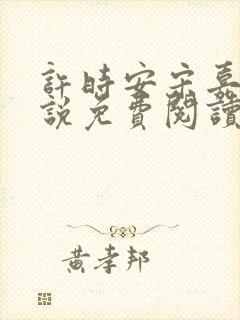 許時安宋嘉
說免費閱讀
黃孝邦